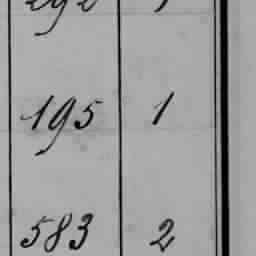 195 1
583 2